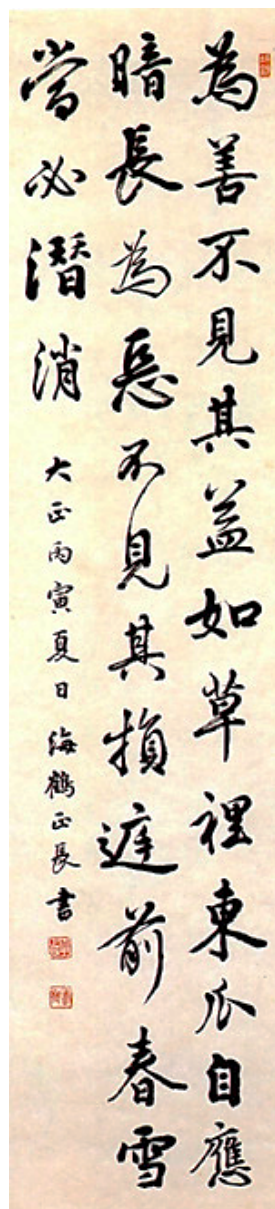 為善不見其益如草裡東瓜自應
暗長為惡不見其損庭前春雪
當必潛消
大正丙寅夏日海鶴正長書